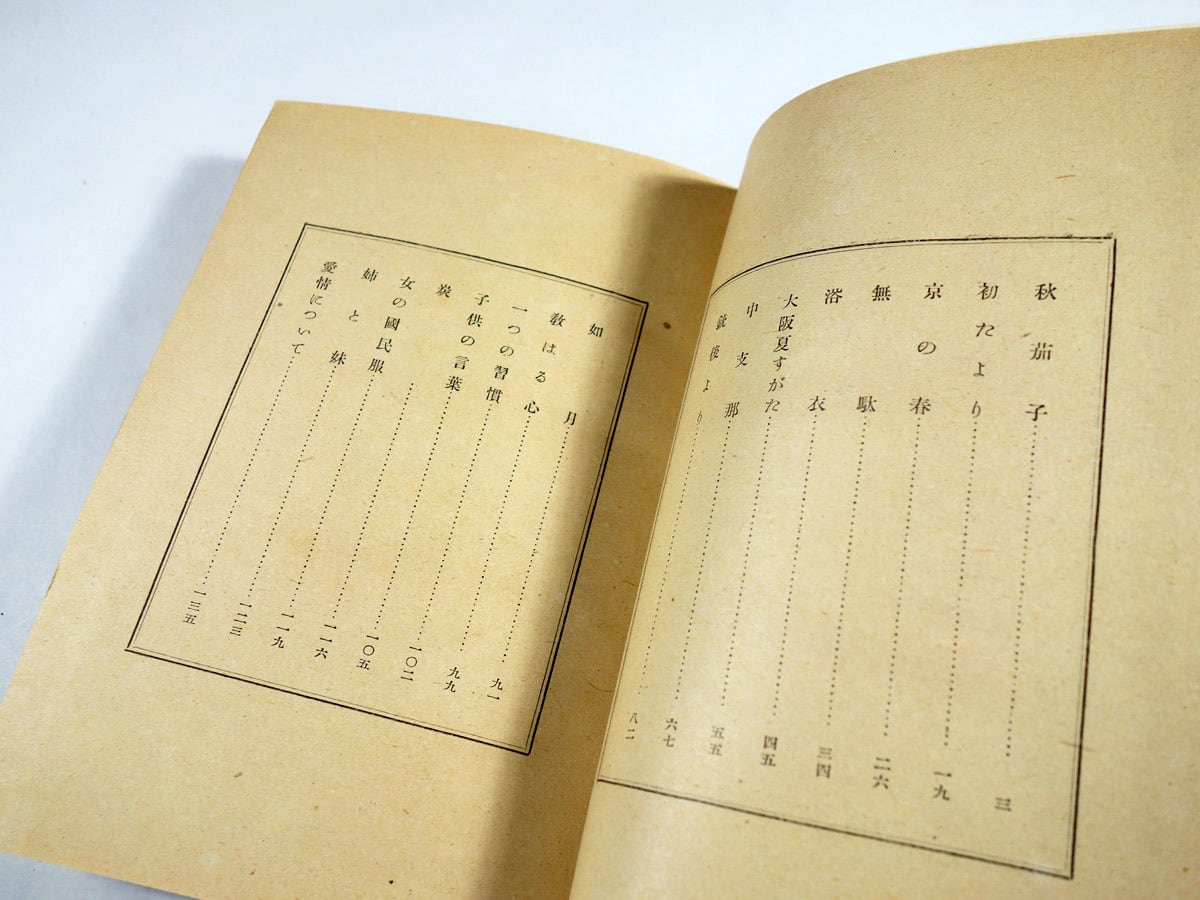 秋茄子……三
初たより……一九
京の春……二六
無駄……三四
浴衣……四五
大阪夏すがた……五五
中支那……六七
銃後より……八二
如月……九一
教はる心……九九
一つの習慣……一〇二
子供の言葉……一〇五
炭……一一六
女の國民服……一一九
姉と妹……一二三
愛情について……一三五